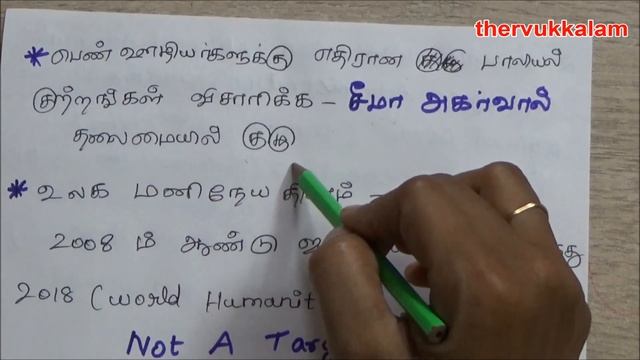 thervukkalam
* பெண் ஊழியர்களுக்கு எதிரான பாலியல்
குற்றங்கள் விசாரிக்க - சீமா அகர்வால்
தலைமையில் குழு
* உலக மனிதநேய தினம் -
2008 ம் ஆண்டு
2018 (World Humanit
Not A Targ